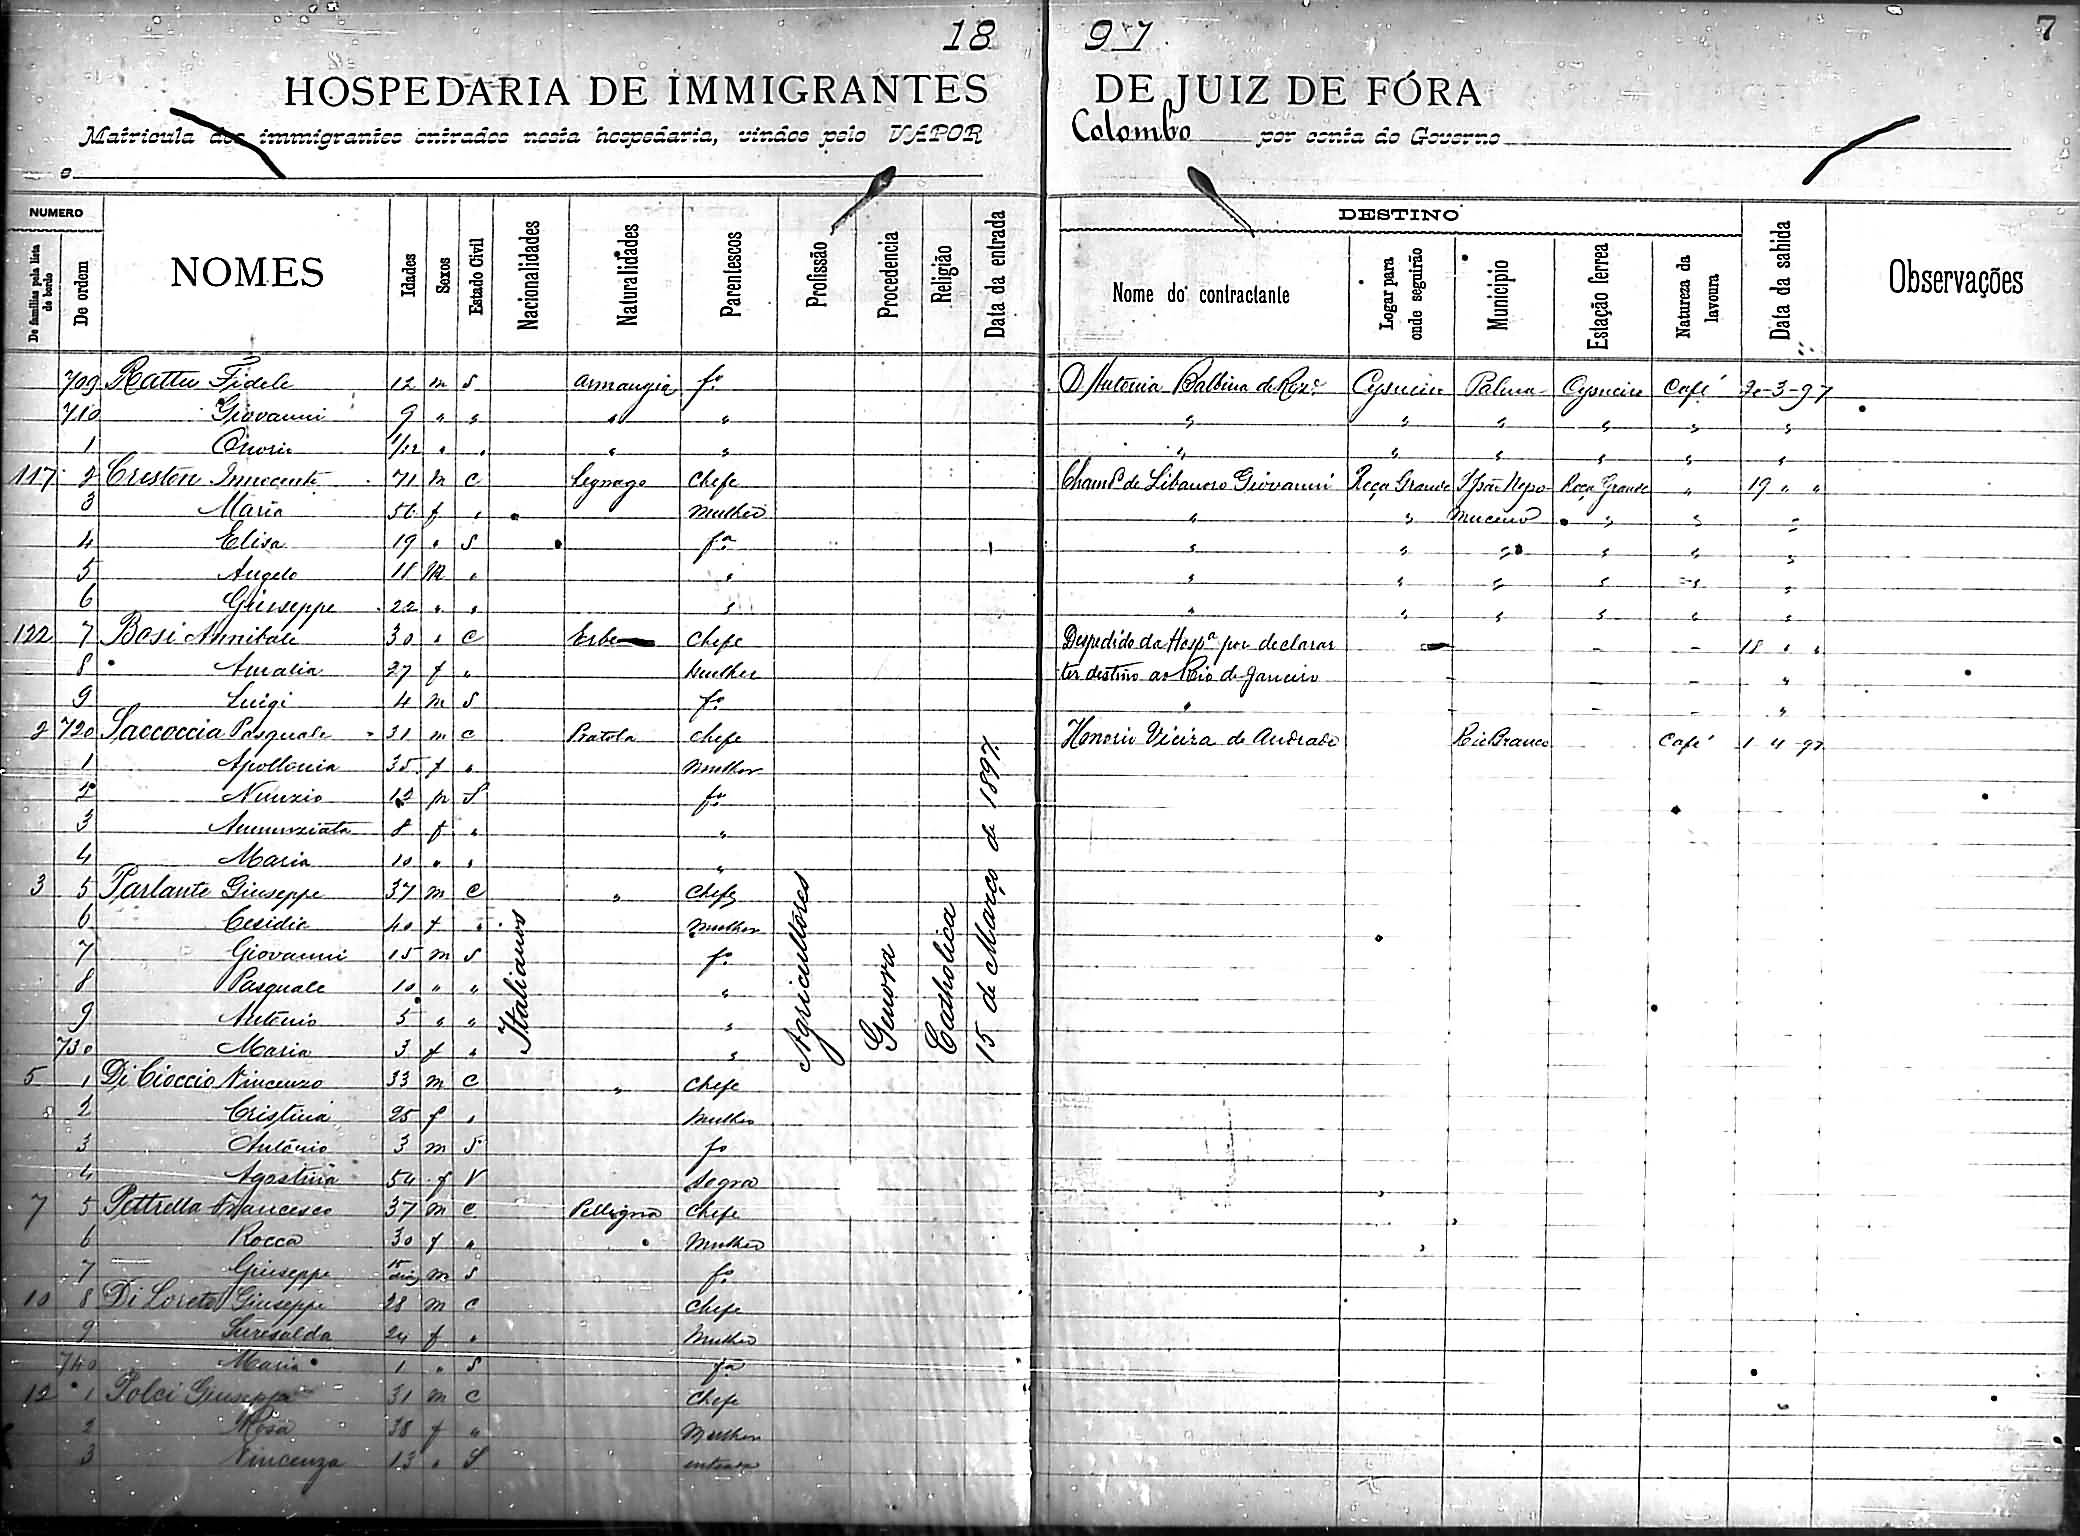 18 97 7
HOSPEDARIA DE IMMIGRANTES DE JUIZ DE FÓRA
Matricula dos immigrantes entrados nesta hospedaria, vindos pelo VAPOR Colombo por conta do Governo
e
NUMERO
De familias pela lista de bordo
De ordem
NOMES
Idades
Sexos
Estado Civil
Nacionalidades
Naturalidades
Parentescos
Profissão
Procedencia
Religião
Data da entrada
DESTINO
Nome do contractante
Logar para onde seguirão
Municipio
Estação ferrea
Natureza da lavoura
Data da sahida
Observações
709 Rattu Fidele 12 m S armaugia fo. D Antonia Balbina de Rezc. Cysneiro Palma Cysneiro Café 20-3-97
710 Giovanni 9 " " " " " " " " " "
1 1/12 " " " " " " " " " "
117 2 Creston Innocente 71 m C Legnago Chefe Libanoro Giovanni Roça Grande S João Nepo Roça Grande " 19 " "
3 Maria 56 f " Mulher " " muceno " " "
4 Elisa 19 " S fa " " " " " "
5 Angelo 11 m " " " " " " " "
6 Giuseppe 22 " " " " " " " " "
122 7 Bosi Annibale 30 " C Erbe Chefe Despedido da Hospa por declarar - - 18 " "
8 Amalia 27 f " Mulher ter destino ao Rio de Janeiro - - "
9 Luigi 4 m S fo. " - - "
2 720 Saccoccia Pasquale 31 m C Pratola Chefe Honorio Vieira de Andrade Rio Branco Café 1 4 97
1 Apollonia 35 f " Mulher
2 Nunzio 12 m S fo.
3 Annunziata 8 f " "
4 Maria 10 " " "
3 5 Parlante Giuseppe 37 m C " Chefe
6 Cesidia 40 f " Mulher
7 Giovanni 15 m S fo.
8 Pasquale 10 " " "
9 Antonio 5 " " "
730 Maria 3 f " "
Italianos
Agricultores
Genova
Catholica
15 de Março de 1897
5 1 Di Cioccio Vincenzo 33 m C " Chefe
2 Cristina 25 f " Mulher
3 Antonio 3 m S fo
4 Agostina 54 f V Sogra
7 5 Pettrella Francesco 37 m C Pelligna Chefe
6 Rocca 30 f " Mulher
7 Giuseppe 15 dias m S fo.
10 8 Di Loreto Giuseppe 28 m C Chefe
9 24 f " Mulher
740 Maria 1 " S fa
12 1 Polci 31 m C Chefe
2 Rosa 38 f " Mulher
3 Vincenza 13 " S enteada